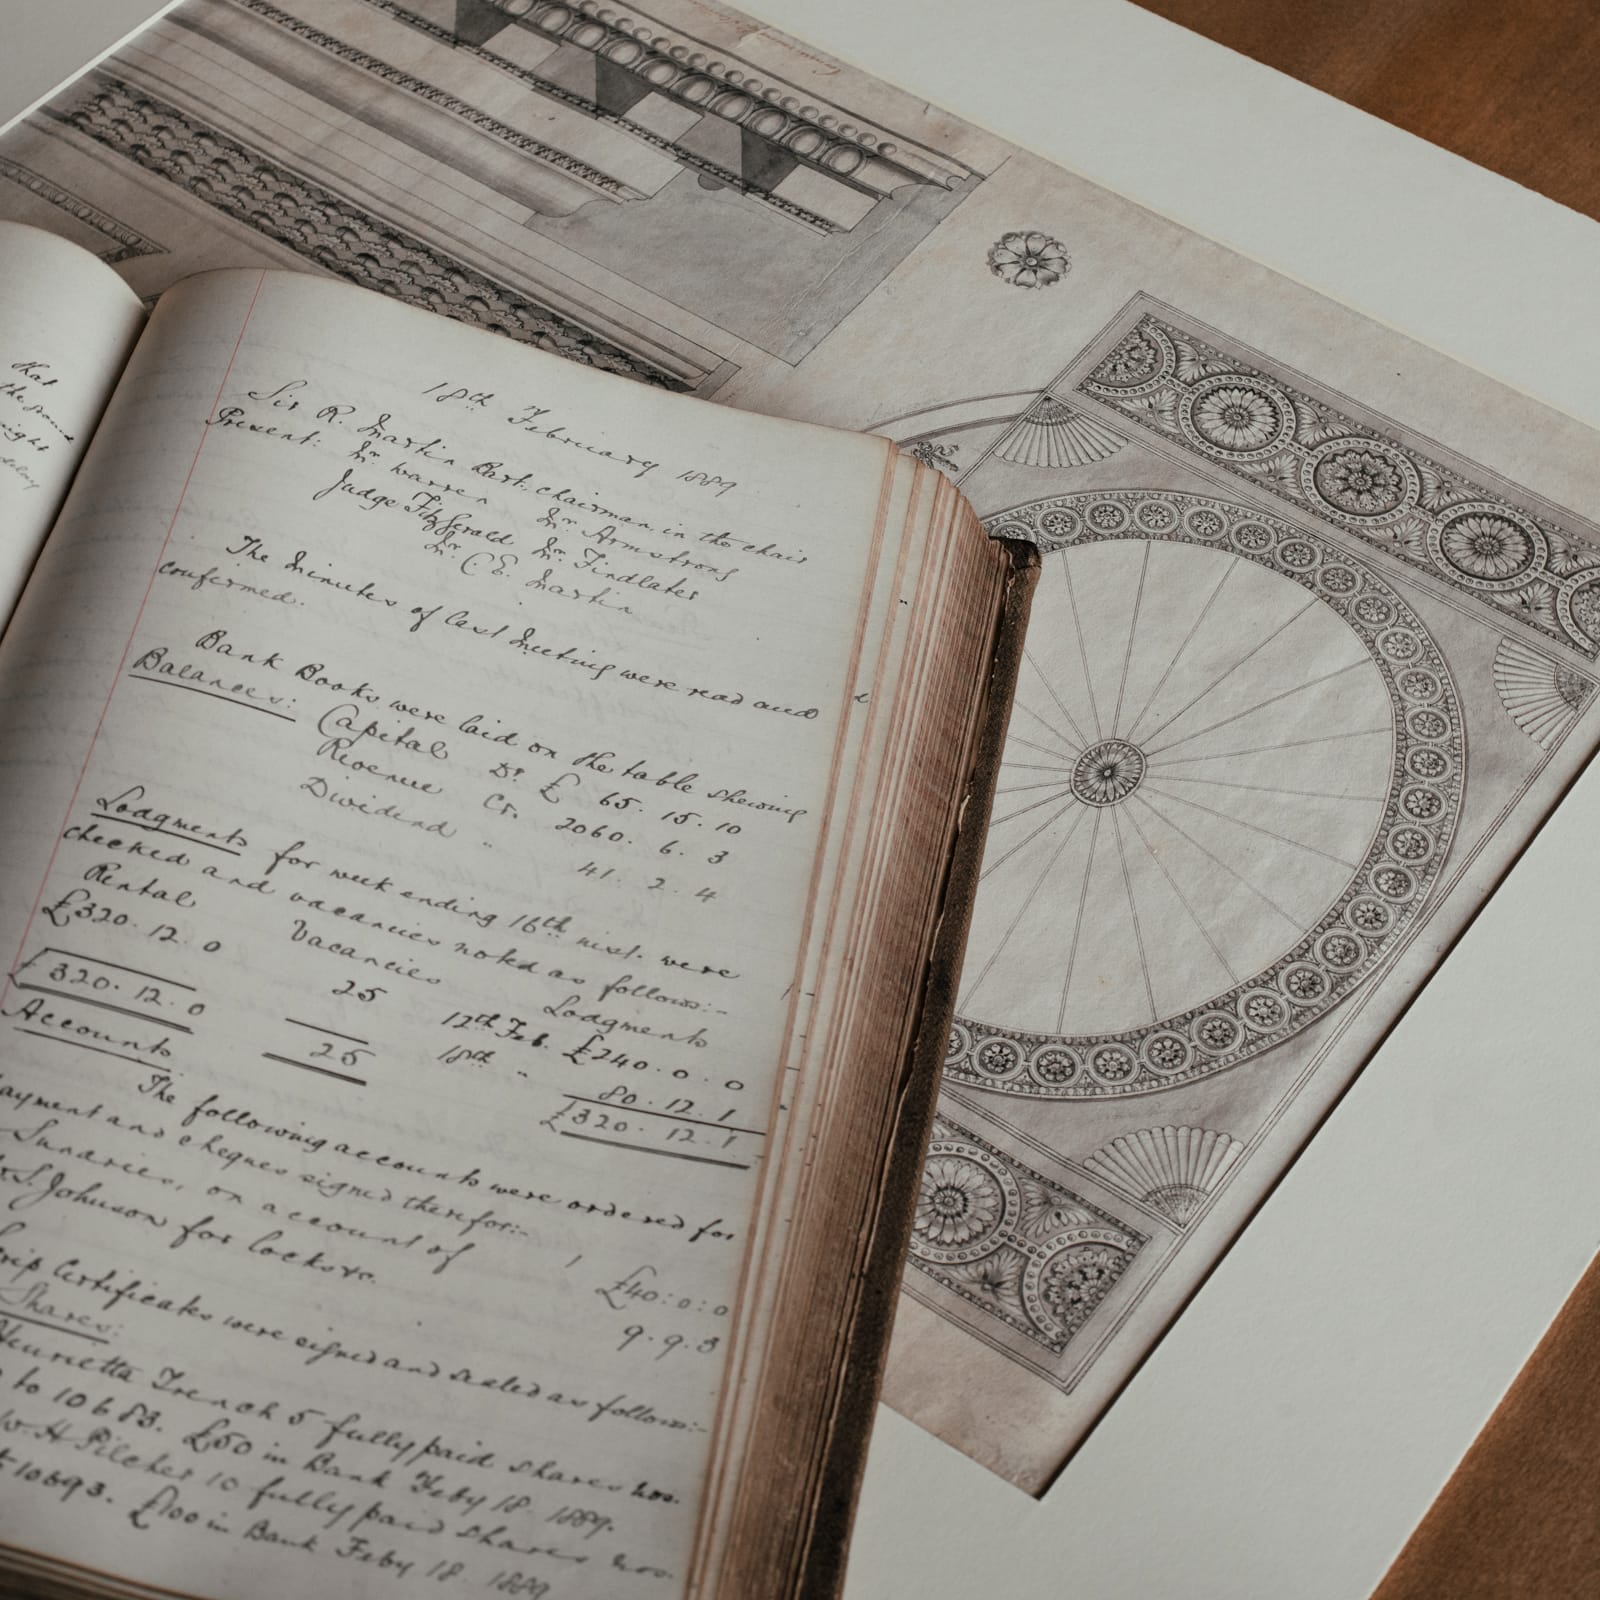 that
the
night
18th February 1889
Sir R. Martin Bart: chairman, in the chair
Present: Mr. Warren Mr. Armstrong
Judge FitzGerald Mr. Findlater
Mr. C. E. Martin
The Minutes of last Meeting were read and
confirmed.
Bank Books were laid on the table shewing
Balances: Capital Dr. £ 65. 15. 10
Revenue Cr. 2060. 6. 3
Dividend " 41. 2. 4
Lodgments for week ending 16th inst. were
checked and vacancies noted as follows:-
Rental Vacancies Lodgments
£320. 12. 0 25 12th Feb. £240. 0. 0
18th " 80. 12. 1
£320. 12. 0 25 £320. 12. 1
Accounts
The following accounts were ordered for
ayment and cheques signed therefor:-
Sundries, on account of £40:0:0
S. Johnson for locks &c. 9. 9. 3
Certificates were signed and sealed as follows:-
Shares:
Henrietta Trench 5 fully paid shares nos.
to 10683. £50 in Bank Feby 18. 1889.
W. H. Pilcher 10 fully paid shares nos.
10693. £100 in Bank Feby 18. 1889